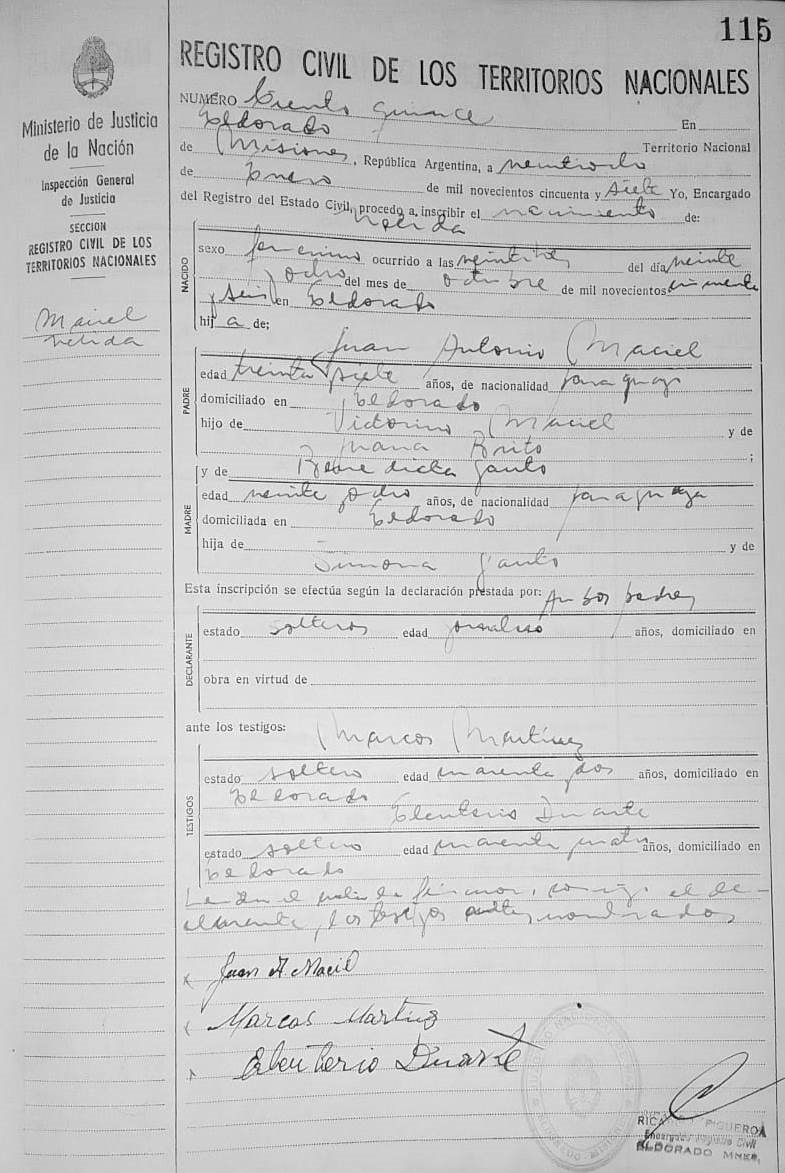 115
Ministerio de Justicia
de la Nación
Inspección General
de Justicia
SECCION
REGISTRO CIVIL DE LOS
TERRITORIOS NACIONALES
Maciel
Nelida
REGISTRO CIVIL DE LOS TERRITORIOS NACIONALES
NUMERO Ciento quince En
Eldorado Territorio Nacional
de Misiones, República Argentina, a veintiocho
de Enero de mil novecientos cincuenta y siete Yo, Encargado
del Registro del Estado Civil, procedo a inscribir el nacimiento de:
Nelida
NACIDO
sexo femenino ocurrido a las del día veinte
y ocho del mes de octubre de mil novecientos cincuenta
y seis en Eldorado
hij a de;
Juan Antonio Maciel
PADRE
edad treinta y siete años, de nacionalidad paraguayo
domiciliado en Eldorado
hijo de Victorino Maciel y de
Juana Brito ;
MADRE
y de Benedicta
edad veinte y ocho años, de nacionalidad paraguaya
domiciliada en Eldorado
hija de y de
Simona
Esta inscripción se efectúa según la declaración prestada por: Ambos padres
DECLARANTE
estado solteros edad años, domiciliado en
obra en virtud de
ante los testigos: Marcos Martinez
TESTIGOS
estado soltero edad cuarenta y dos años, domiciliado en
Eldorado
Eleuterio Duarte
estado soltero edad cuarenta y cuatro años, domiciliado en
Eldorado
el de-
clarante, los testigos nombrados
Juan A. Maciel
Marcos Martinez
Eleuterio Duarte
FIGUEROA
Encargado Registro Civil
ELDORADO MNES.